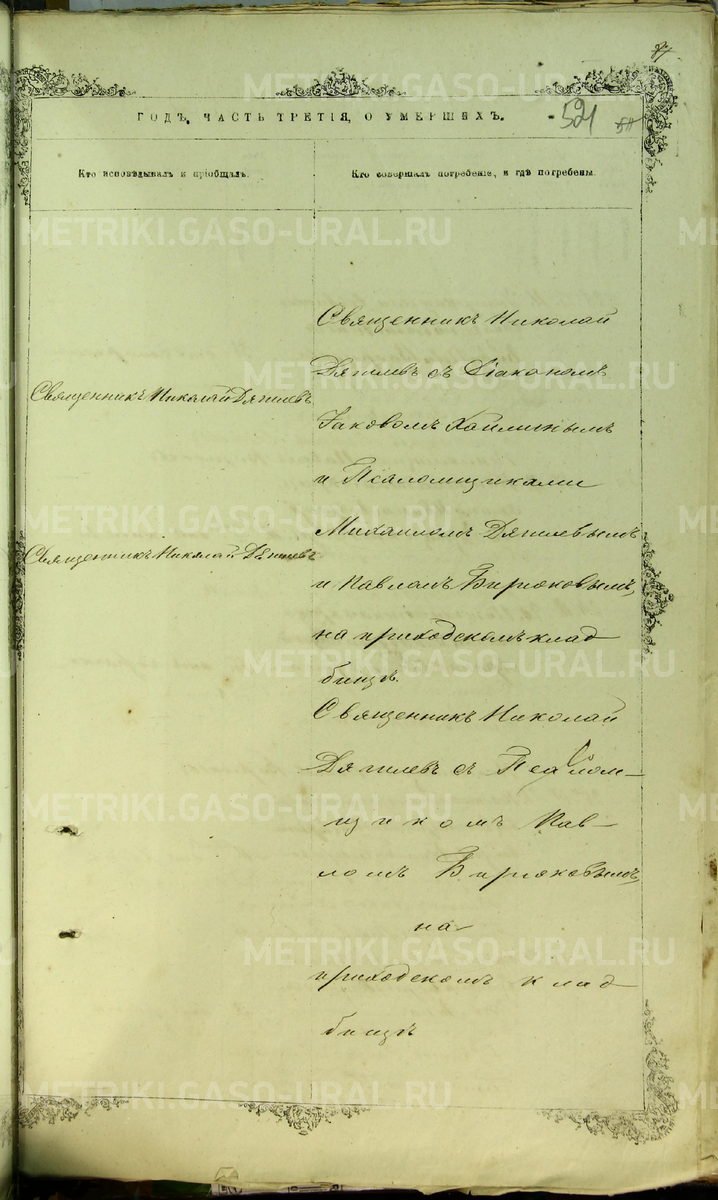 77
ГОДЪ, ЧАСТЬ ТРЕТІЯ, О УМЕРШИХЪ.
521
Кто исповѣдывалъ и пріобщалъ.
Кто совершалъ погребеніе, и гдѣ погребены.
Священникъ Николай Дягилевъ
Священникъ Николай Дягилевъ
Священникъ Николай
Дягилевъ съ Діакономъ
Іаковомъ
и Псаломщиками
Михаиломъ Дягилевымъ
и Павломъ Бирюковымъ,
на приходскомъ клад
бищѣ.
Священникъ Николай
Дягилевъ съ Псалом-
щикомъ Пав-
ломъ Бирюковымъ,
на
приходскомъ клад
бищѣ
METRIKI.GASO-URAL.RU